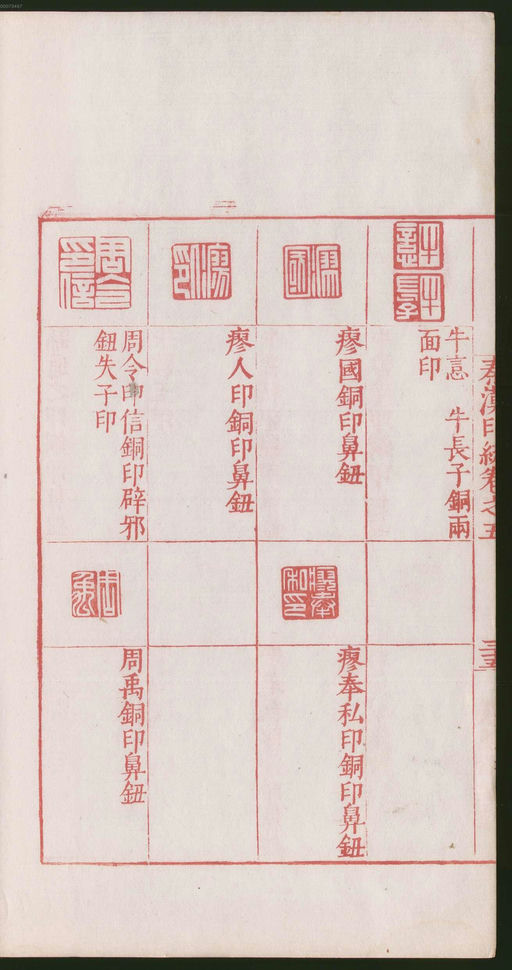 00073467
秦漢印統卷之五
三五
牛意 牛長子銅兩
面印
廖國銅印鼻鈕
廖奉私印銅印鼻鈕
廖人印銅印鼻鈕
周令印信銅印辟邪
鈕失子印
周禹銅印鼻鈕